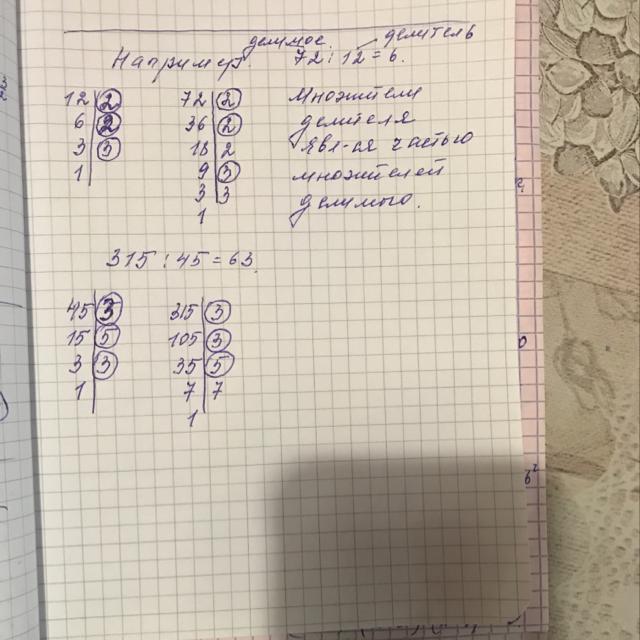 делимое делитель
Например: 72 : 12 = 6.
12 | 2 72 | 2 Множители
6 | 2 36 | 2 делителя
3 | 3 18 | 2 явл-ся частью
1 | 9 | 3 множителей
3 | 3 делимого.
1
315 : 45 = 63.
45 | 3 315 | 3
15 | 5 105 | 3
3 | 3 35 | 5
1 | 7 | 7
1